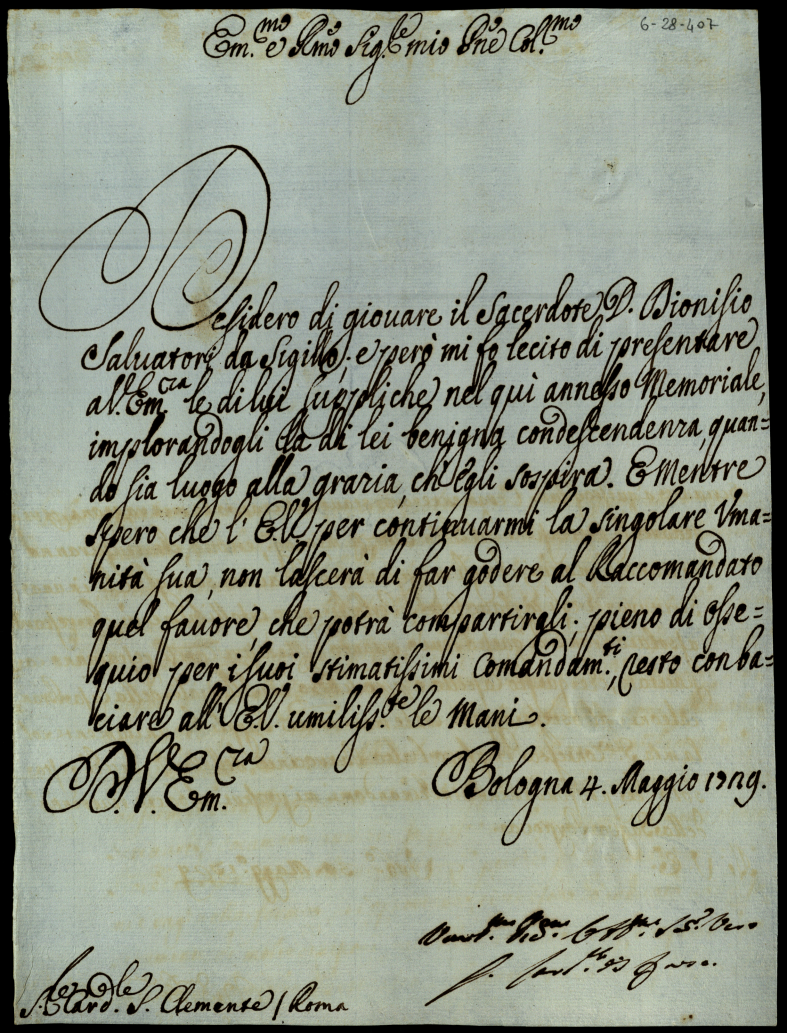 6-28-407
Em.mo e Rmo Sig.re mio Pne Col.mo
Desidero di giouare il Sacerdote D. Dionisio
Saluatori da Sigillo; e però mi fo lecito di presentare
al'Em.cia le di lui suppliche nel quì annesso Memoriale,
implorandogli la di lei benigna condescendenza, quan=
do sia luogo alla grazia, ch'egli sospira. E mentre
spero che l'E.V. per continuarmi la singolare Vma=
nità sua, non lascerà di far godere al Raccomandato
quel fauore, che potrà compartirgli; pieno di osse=
quio per i suoi stimatissimi Comandam.ti, resto con ba=
ciare all'E.V. umiliss.te le Mani.
D.V. Em.cia
Bologna 4. Maggio 1729.
S.r Card.le S. Clemente / Roma